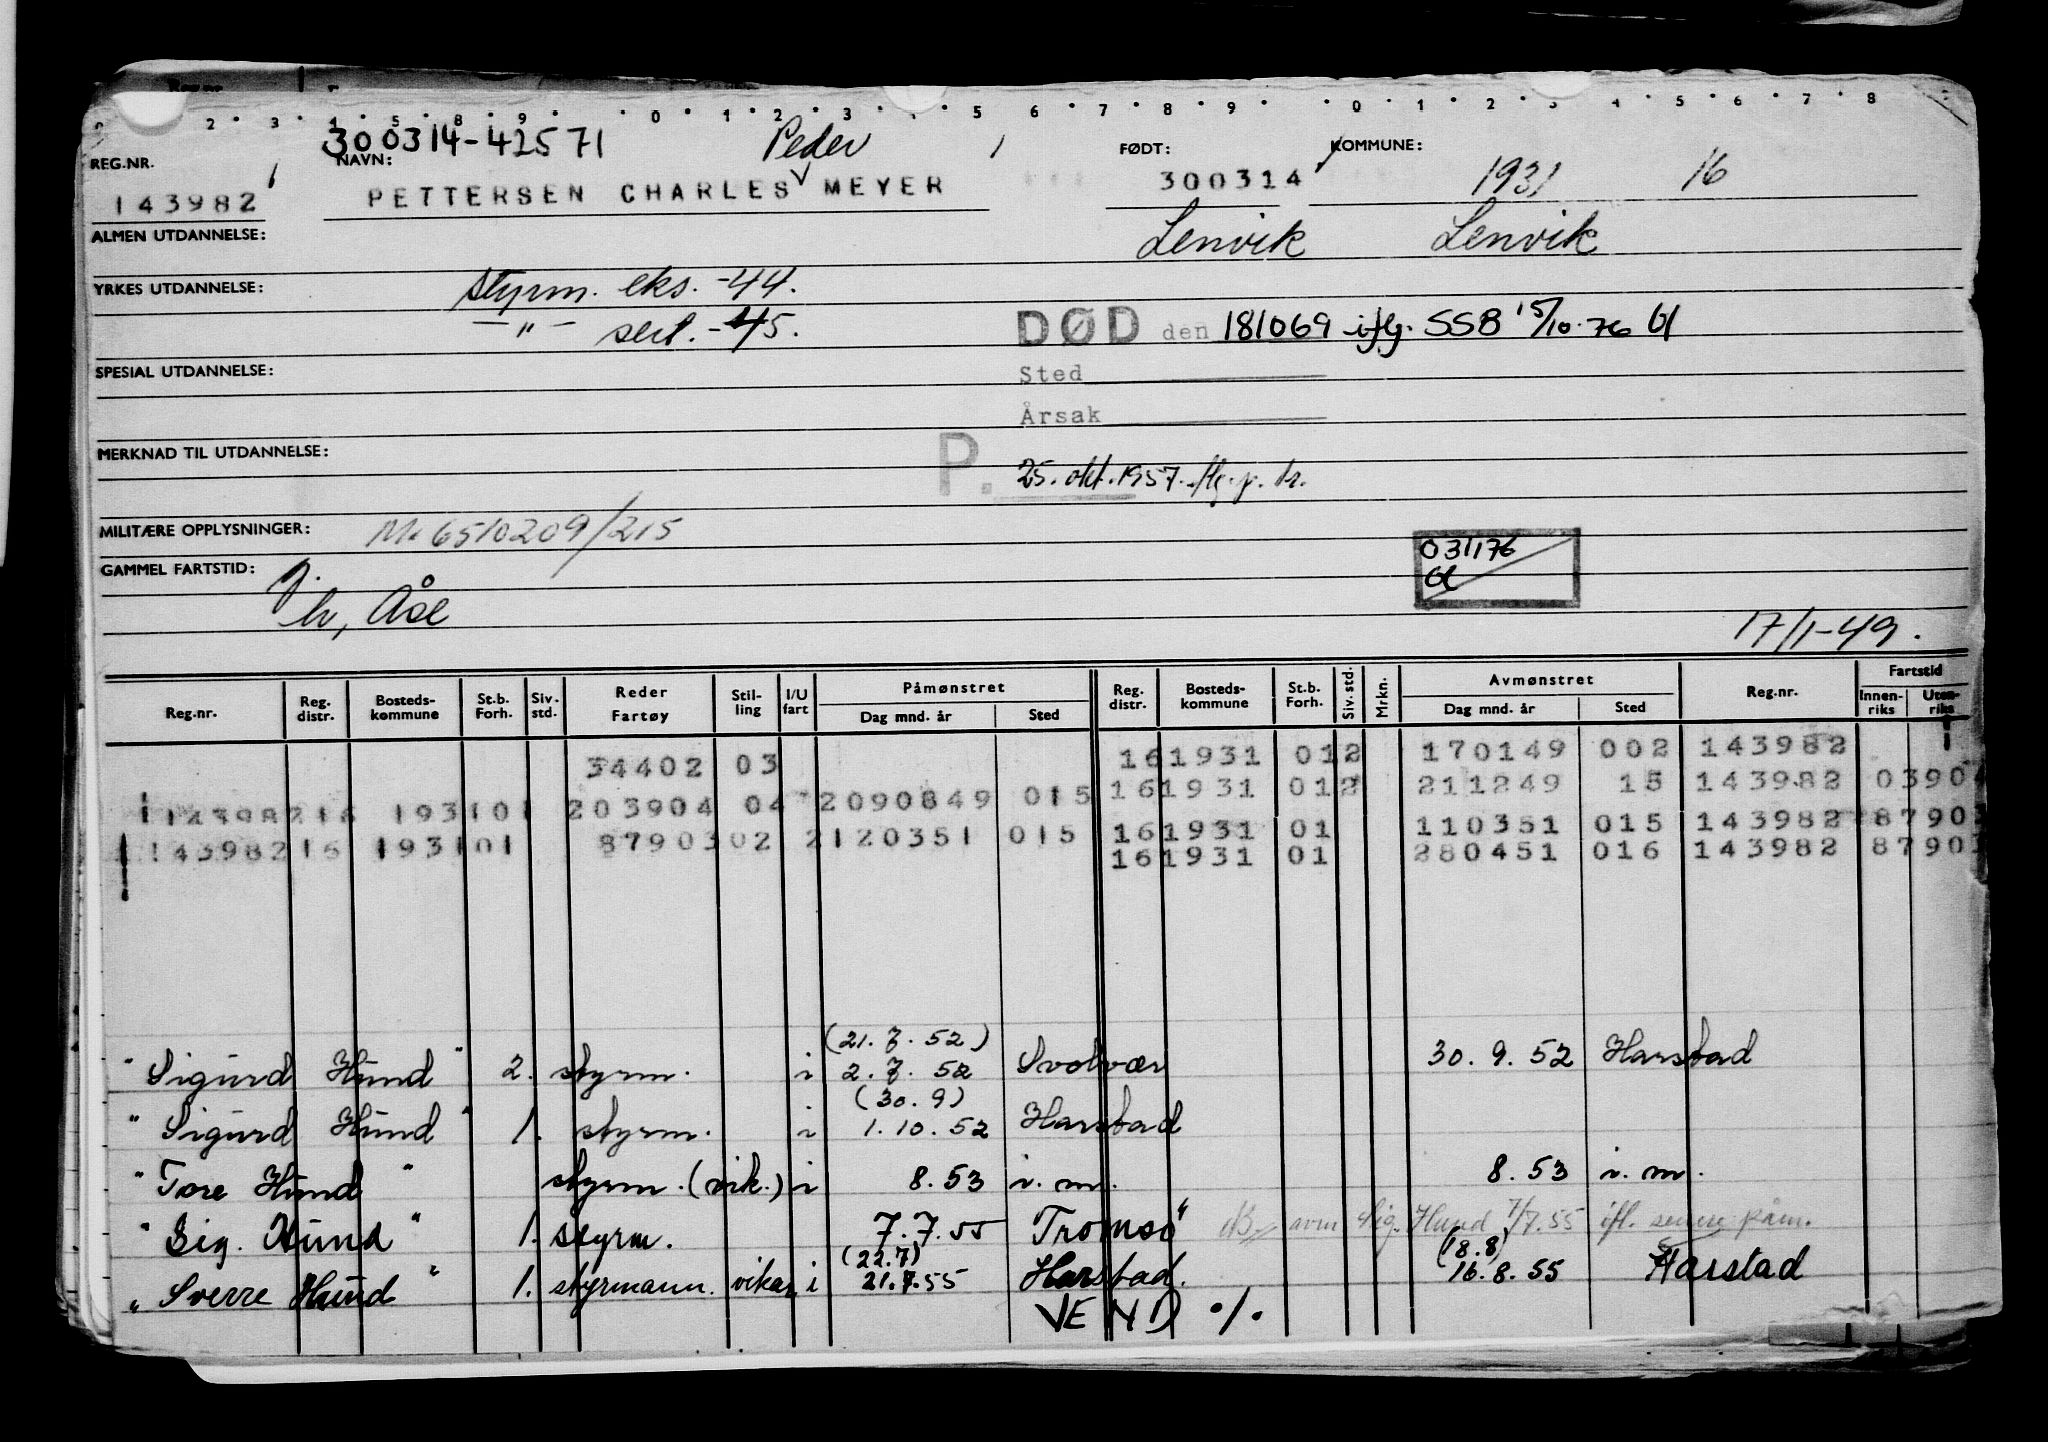 2 · 3 · 4 · 5 · 8 · 9 · 0 · 1 · 2 · 3 · 5 · 6 · 7 · 8 · 9 · 0 · 1 · 2 · 3 · 4 · 5 · 6 · 7 · 8
300314-42571 Peder
REG.NR. NAVN: FØDT: KOMMUNE:
143982 PETTERSEN CHARLES MEYER 300314 1931 16
ALMEN UTDANNELSE: Lenvik Lenvik
YRKES UTDANNELSE: styrm. eks. -44.
— " — sert. -45. DØD den 181069 iflg. SSB 15/10-76
SPESIAL UTDANNELSE: Sted
Årsak
MERKNAD TIL UTDANNELSE: P. 25. okt. 1957.
MILITÆRE OPPLYSNINGER: M. 6510209/215
031176
GAMMEL FARTSTID:
h, Åse
17/1-49.
Reg.nr. Reg. distr. Bosteds-kommune St.b. Forh. Siv. std. Reder Fartøy Stil-ling I/U fart Påmønstret Dag mnd. år Sted Reg. distr. Bosteds-kommune St.b. Forh. Siv. std. Mrkn. Avmønstret Dag mnd. år Sted Reg.nr. Fartstid Innen-riks Uten-riks
34402 03 161931 012 170149 002 143982
14398216 193101 203904 04 2090849 015 161931 012 211249 15 143982 03904
161931 01 110351 015 143982 8790
14398216 193101 87903 02 2120351 015 161931 01 280451 016 143982 8790
(21.7.52)
"Sigurd Hund" 2. styrm. i 2.7.52 Svolvær 30.9.52 Harstad
(30.9)
"Sigurd Hund" 1. styrm. i 1.10.52 Harstad
"Tore Hund" styrm. (vik.) i 8.53 i. m. 8.53 i. m.
"Sig. Hund" 1. styrm. 7.7.55 Tromsø avm Sig. Hund 7/7.55 ifl. senere påm.
(22.7) (18.8)
"Sverre Hund" 1. styrmann. vikar i 21.7.55 Harstad. 16.8.55 Harstad
VEND ./.